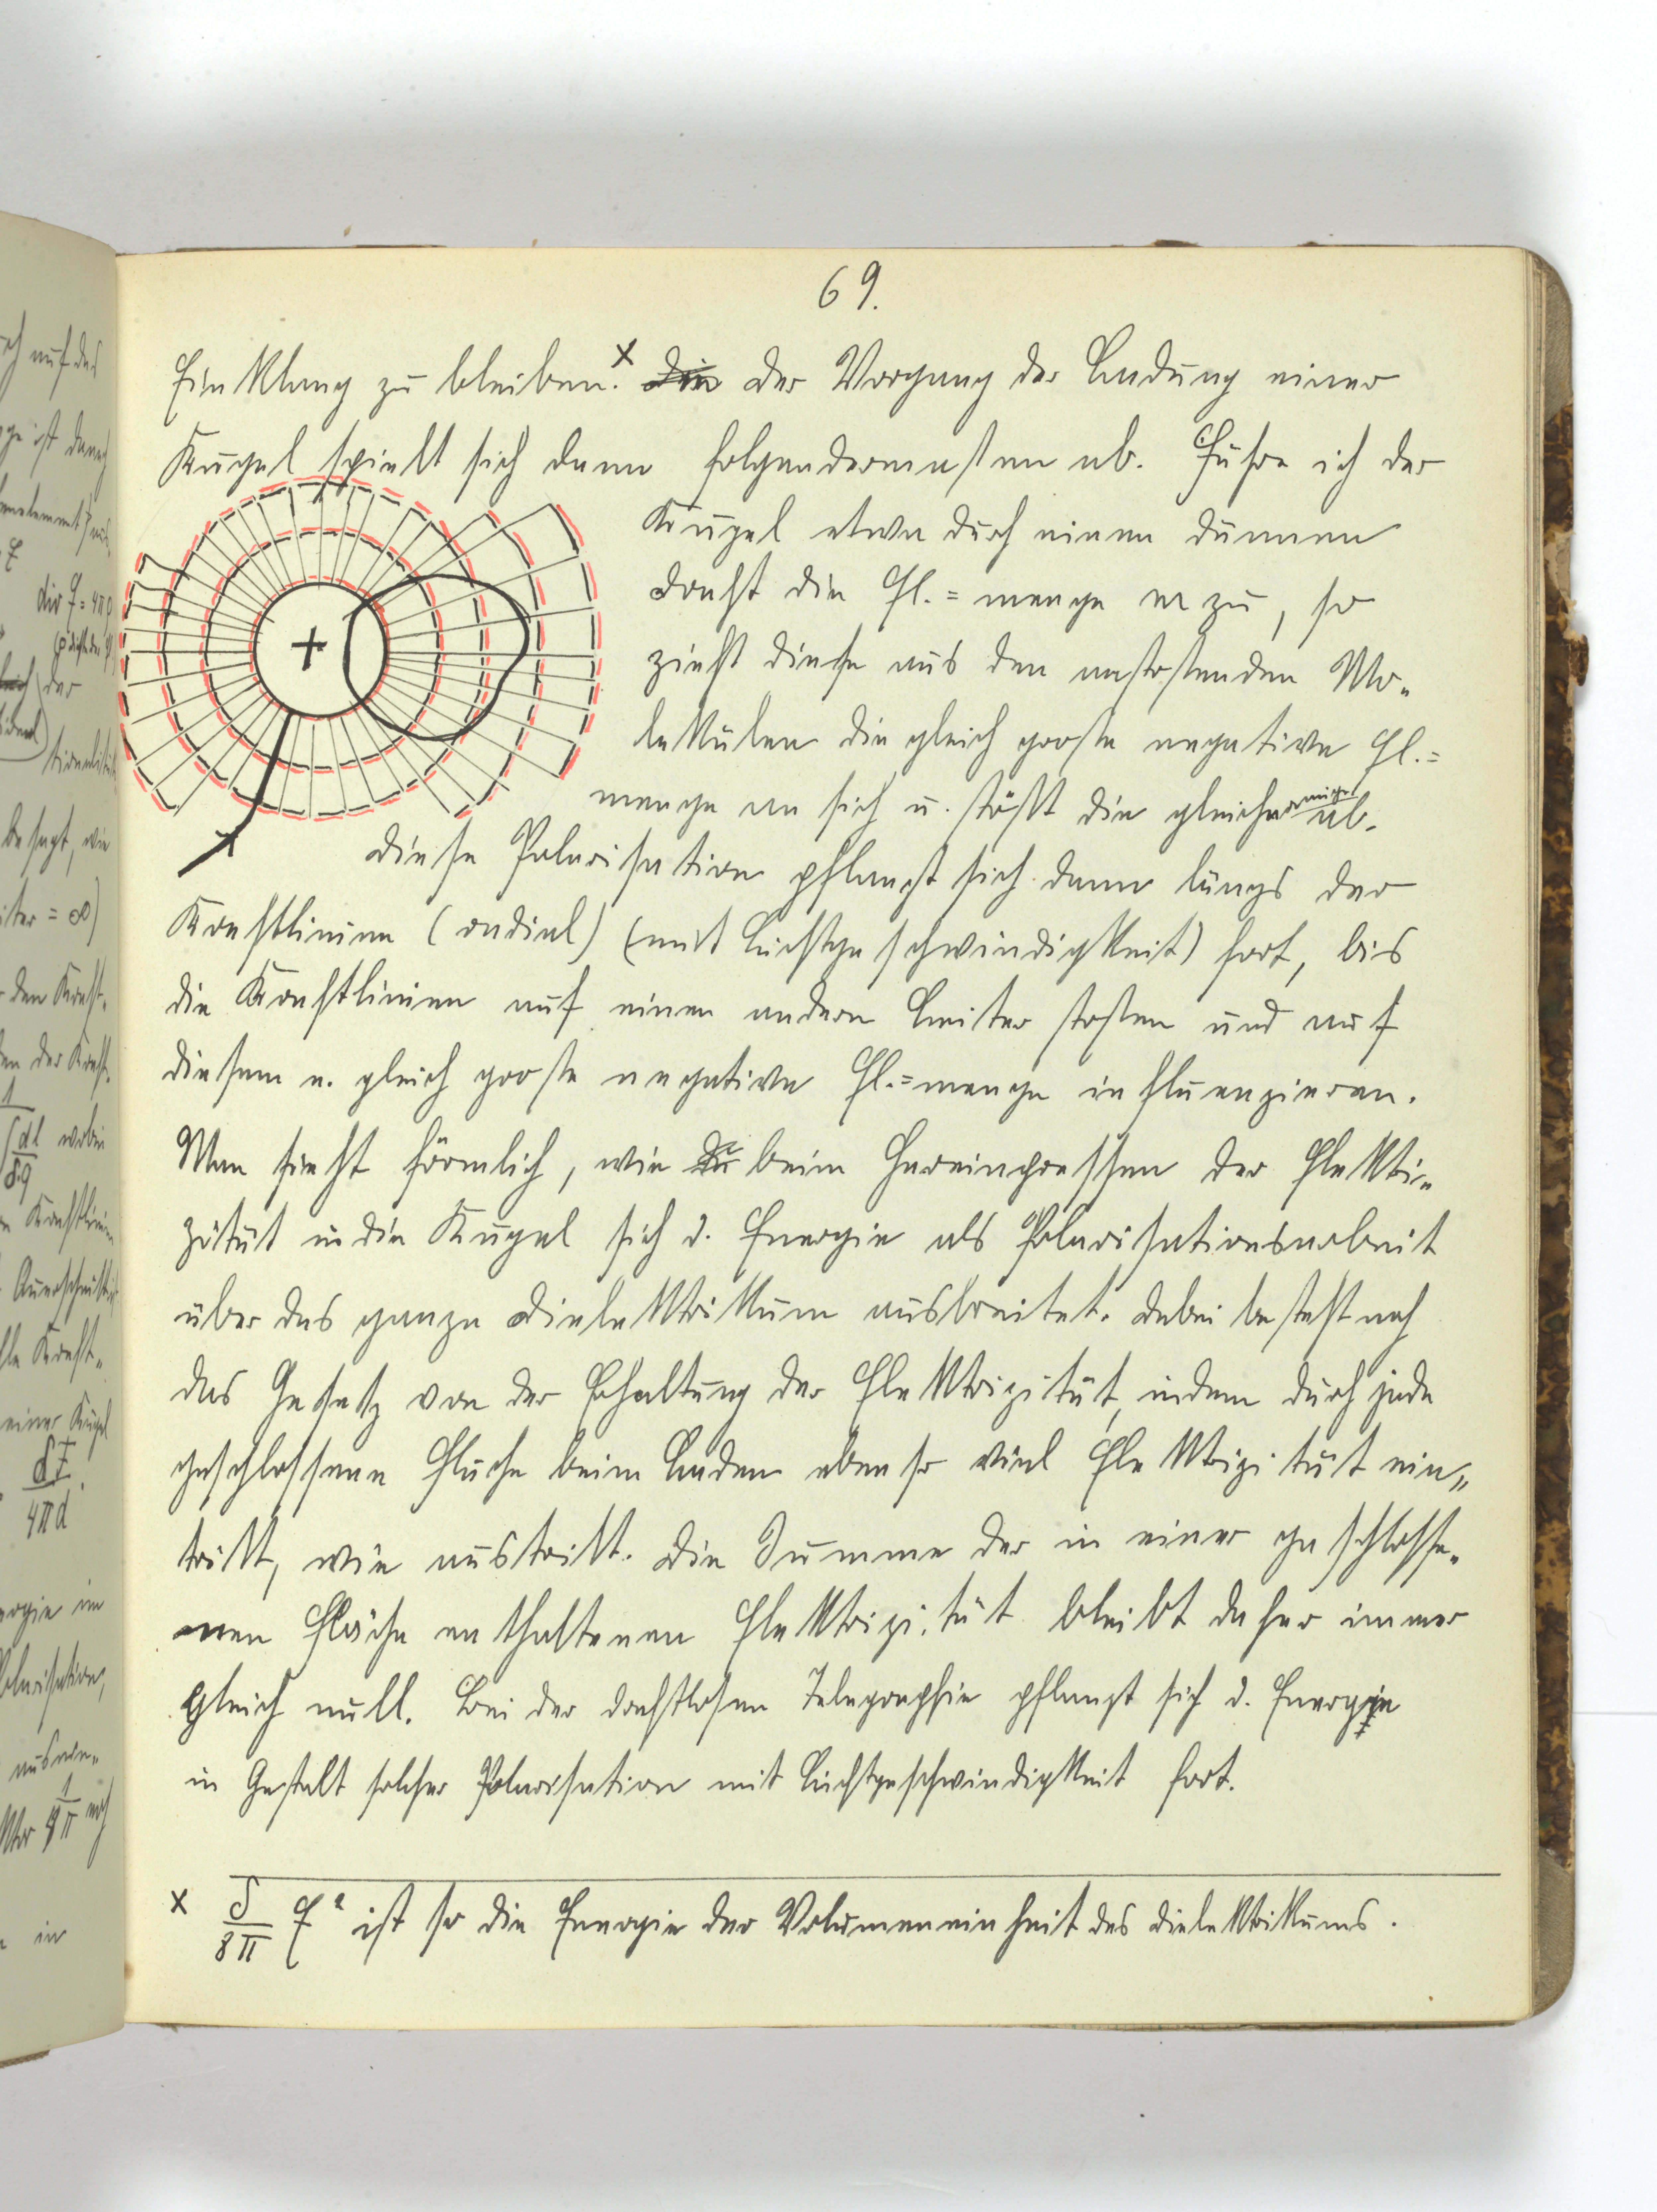 69.
Einklang zu bleiben.x die der Vorgang der Ladung einer
Kugel spielt sich dann folgendermassen ab. Führe ich der
Kugel etwa durch einen dünnen
Draht die El.=menge m zu, so
zieht diese aus den anstossenden Mo-
lekülen die gleich grosse negative El.=
menge an sich u. stösst die gleichnamige ab.
Diese Polarisation pflanzt sich dann längs der
Kraftlinien (radial) (mit Lichtgeschwindigkeit) fort, bis
die Kraftlinien auf einen andern Leiter stossen und auf
diesem e. gleich grosse negative El.=menge influenzieren.
Man sieht förmlich, wie beim Hereinpressen der Elektri-
zität in die Kugel sich d. Energie als Polarisationsarbeit
über das ganze Dielektrikum ausbreitet. Dabei besteht noch
das Gesetz von der Erhaltung der Elektrizität, indem durch jede
geschlossene Fläche beim Laden eben so viel Elektrizität ein-
tritt, wie austritt. Die Summe der in einer geschlosse-
nen Fläche enthaltenen Elektrizität bleibt daher immer
gleich null. Bei der drahtlosen Telegraphie pflanzt sich d. Energie
in Gestalt solcher Polarisation mit Lichtgeschwindigkeit fort.
+
x δ/8π F² ist so die Energie der Volumeneinheit des Dielektrikums.